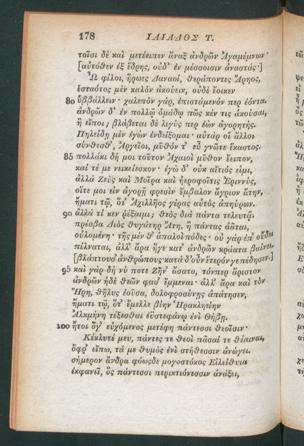 178 ΙΛΙΑΔΟΣ Τ.
τοῖσι δὲ καὶ μετέειπεν ἄναξ ἀνδρῶν Ἀγαμέμνων·
[αὐτόθεν ἐξ ἕδρης, οὐδ' ἐν μέσσοισιν ἀναστάς·]
Ὦ φίλοι, ἥρωες Δαναοί, θεράποντες Ἄρηος,
ἑσταότος μὲν καλὸν ἀκούειν, οὐδὲ ἔοικεν
80 ὑββάλλειν· χαλεπὸν γάρ, ἐπιστάμενόν περ ἐόντα.
ἀνδρῶν δ' ἐν πολλῷ ὁμάδῳ πῶς κέν τις ἀκούσαι,
ἢ εἴποι; βλάβεται δὲ λιγύς περ ἐὼν ἀγορητής.
Πηλείδῃ μὲν ἐγὼν ἐνδείξομαι· αὐτὰρ οἱ ἄλλοι
σύνθεσθ', Ἀργεῖοι, μῦθόν τ' εὖ γνῶτε ἕκαστος.
85 πολλάκι δή μοι τοῦτον Ἀχαιοὶ μῦθον ἔειπον,
καί τέ με νεικείεσκον· ἐγὼ δ' οὐκ αἴτιός εἰμι,
ἀλλὰ Ζεὺς καὶ Μοῖρα καὶ ἠεροφοῖτις Ἐριννύς,
οἵτε μοι εἰν ἀγορῇ φρεσὶν ἔμβαλον ἄγριον ἄτην,
ἤματι τῷ, ὅτ' Ἀχιλλῆος γέρας αὐτὸς ἀπηύρων.
90 ἀλλὰ τί κεν ῥέξαιμι; θεὸς διὰ πάντα τελευτᾷ·
πρέσβα Διὸς θυγάτηρ Ἄτη, ἣ πάντας ἀᾶται,
οὐλομένη· τῆς μέν θ' ἁπαλοὶ πόδες· οὐ γὰρ ἐπ' οὔδει
πίλναται, ἀλλ' ἄρα ἥγε κατ' ἀνδρῶν κράατα βαίνει,
[βλάπτουσ' ἀνθρώπους· κατὰ δ' οὖν ἕτερόν γε πέδησεν·]
95 καὶ γὰρ δή νύ ποτε Ζῆν' ἄσατο, τόνπερ ἄριστον
ἀνδρῶν ἠδὲ θεῶν φασ' ἔμμεναι· ἀλλ' ἄρα καὶ τὸν
Ἥρη, θῆλυς ἐοῦσα, δολοφροσύνῃς ἀπάτησεν,
ἤματι τῷ, ὅτ' ἔμελλε βίην Ἡρακληείην
Ἀλκμήνη τέξεσθαι ἐϋστεφάνῳ ἐνὶ Θήβῃ.
100 ἤτοι ὅγ' εὐχόμενος μετέφη πάντεσσι θεοῖσιν·
Κέκλυτέ μευ, πάντες τε θεοὶ πᾶσαί τε θέαιναι,
ὄφρ' εἴπω, τά με θυμὸς ἐνὶ στήθεσσιν ἀνώγει.
σήμερον ἄνδρα φόωσδε μογοστόκος Εἰλείθυια
ἐκφανεῖ, ὃς πάντεσσι περικτιόνεσσιν ἀνάξει,